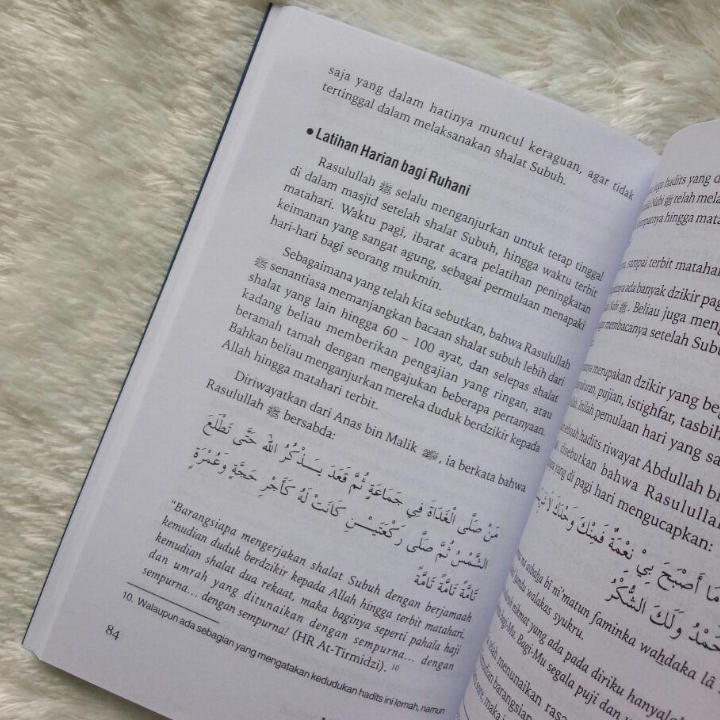 saja yang dalam hatinya muncul keraguan, agar tidak
tertinggal dalam melaksanakan shalat Subuh.
• Latihan Harian bagi Ruhani
Rasulullah ﷺ selalu menganjurkan untuk tetap tinggal
di dalam masjid setelah shalat Subuh, hingga waktu terbit
matahari. Waktu pagi, ibarat acara pelatihan peningkatan
keimanan yang sangat agung, sebagai permulaan menapaki
hari-hari bagi seorang mukmin.
Sebagaimana yang telah kita sebutkan, bahwa Rasulullah
ﷺ senantiasa memanjangkan bacaan shalat subuh lebih dari
shalat yang lain hingga 60 – 100 ayat, dan selepas shalat
kadang beliau memberikan pengajian yang ringan, atau
beramah tamah dengan mengajukan beberapa pertanyaan.
Bahkan beliau menganjurkan mereka duduk berdzikir kepada
Allah hingga matahari terbit.
Diriwayatkan dari Anas bin Malik, ia berkata bahwa
Rasulullah ﷺ bersabda:
مَنْ صَلَّى الْغَدَاةَ فِي جَمَاعَةٍ ثُمَّ قَعَدَ يَذْكُرُ اللهَ حَتَّى تَطْلُعَ
الشَّمْسُ ثُمَّ صَلَّى رَكْعَتَيْنِ كَانَتْ لَهُ كَأَجْرِ حَجَّةٍ وَعُمْرَةٍ
تَامَّةٍ تَامَّةٍ تَامَّةٍ
"Barangsiapa mengerjakan shalat Subuh dengan berjamaah
kemudian duduk berdzikir kepada Allah hingga terbit matahari,
kemudian shalat dua rekaat, maka baginya seperti pahala haji
dan umrah yang ditunaikan dengan sempurna... dengan
sempurna... dengan sempurna! (HR At-Tirmidzi). 10
10. Walaupun ada sebagian yang mengatakan kedudukan hadits ini lemah, namun
84
hadits yang d
Nabi ﷺ telah mela
hingga mata
sampai terbit matahar
ada banyak dzikir pag
Beliau juga men
membacanya setelah Subu
merupakan dzikir yang be
pujian, istighfar, tasbih
Inilah pemulaan hari yang sa
sebuah hadits riwayat Abdullah b
disebutkan bahwa Rasulul
yang di pagi hari mengucapkan:
مَا أَصْبَحَ بِيْ نِعْمَةٌ فَمِنْكَ وَحْدَكَ لَا
وَلَكَ الشُّكْرُ
bi ni'matun faminka wahdaka lâ
walakas syukru.
nikmat yang ada pada diriku hanyalah
Bagi-Mu segala puji dan
menunaikan rasa
barangsian